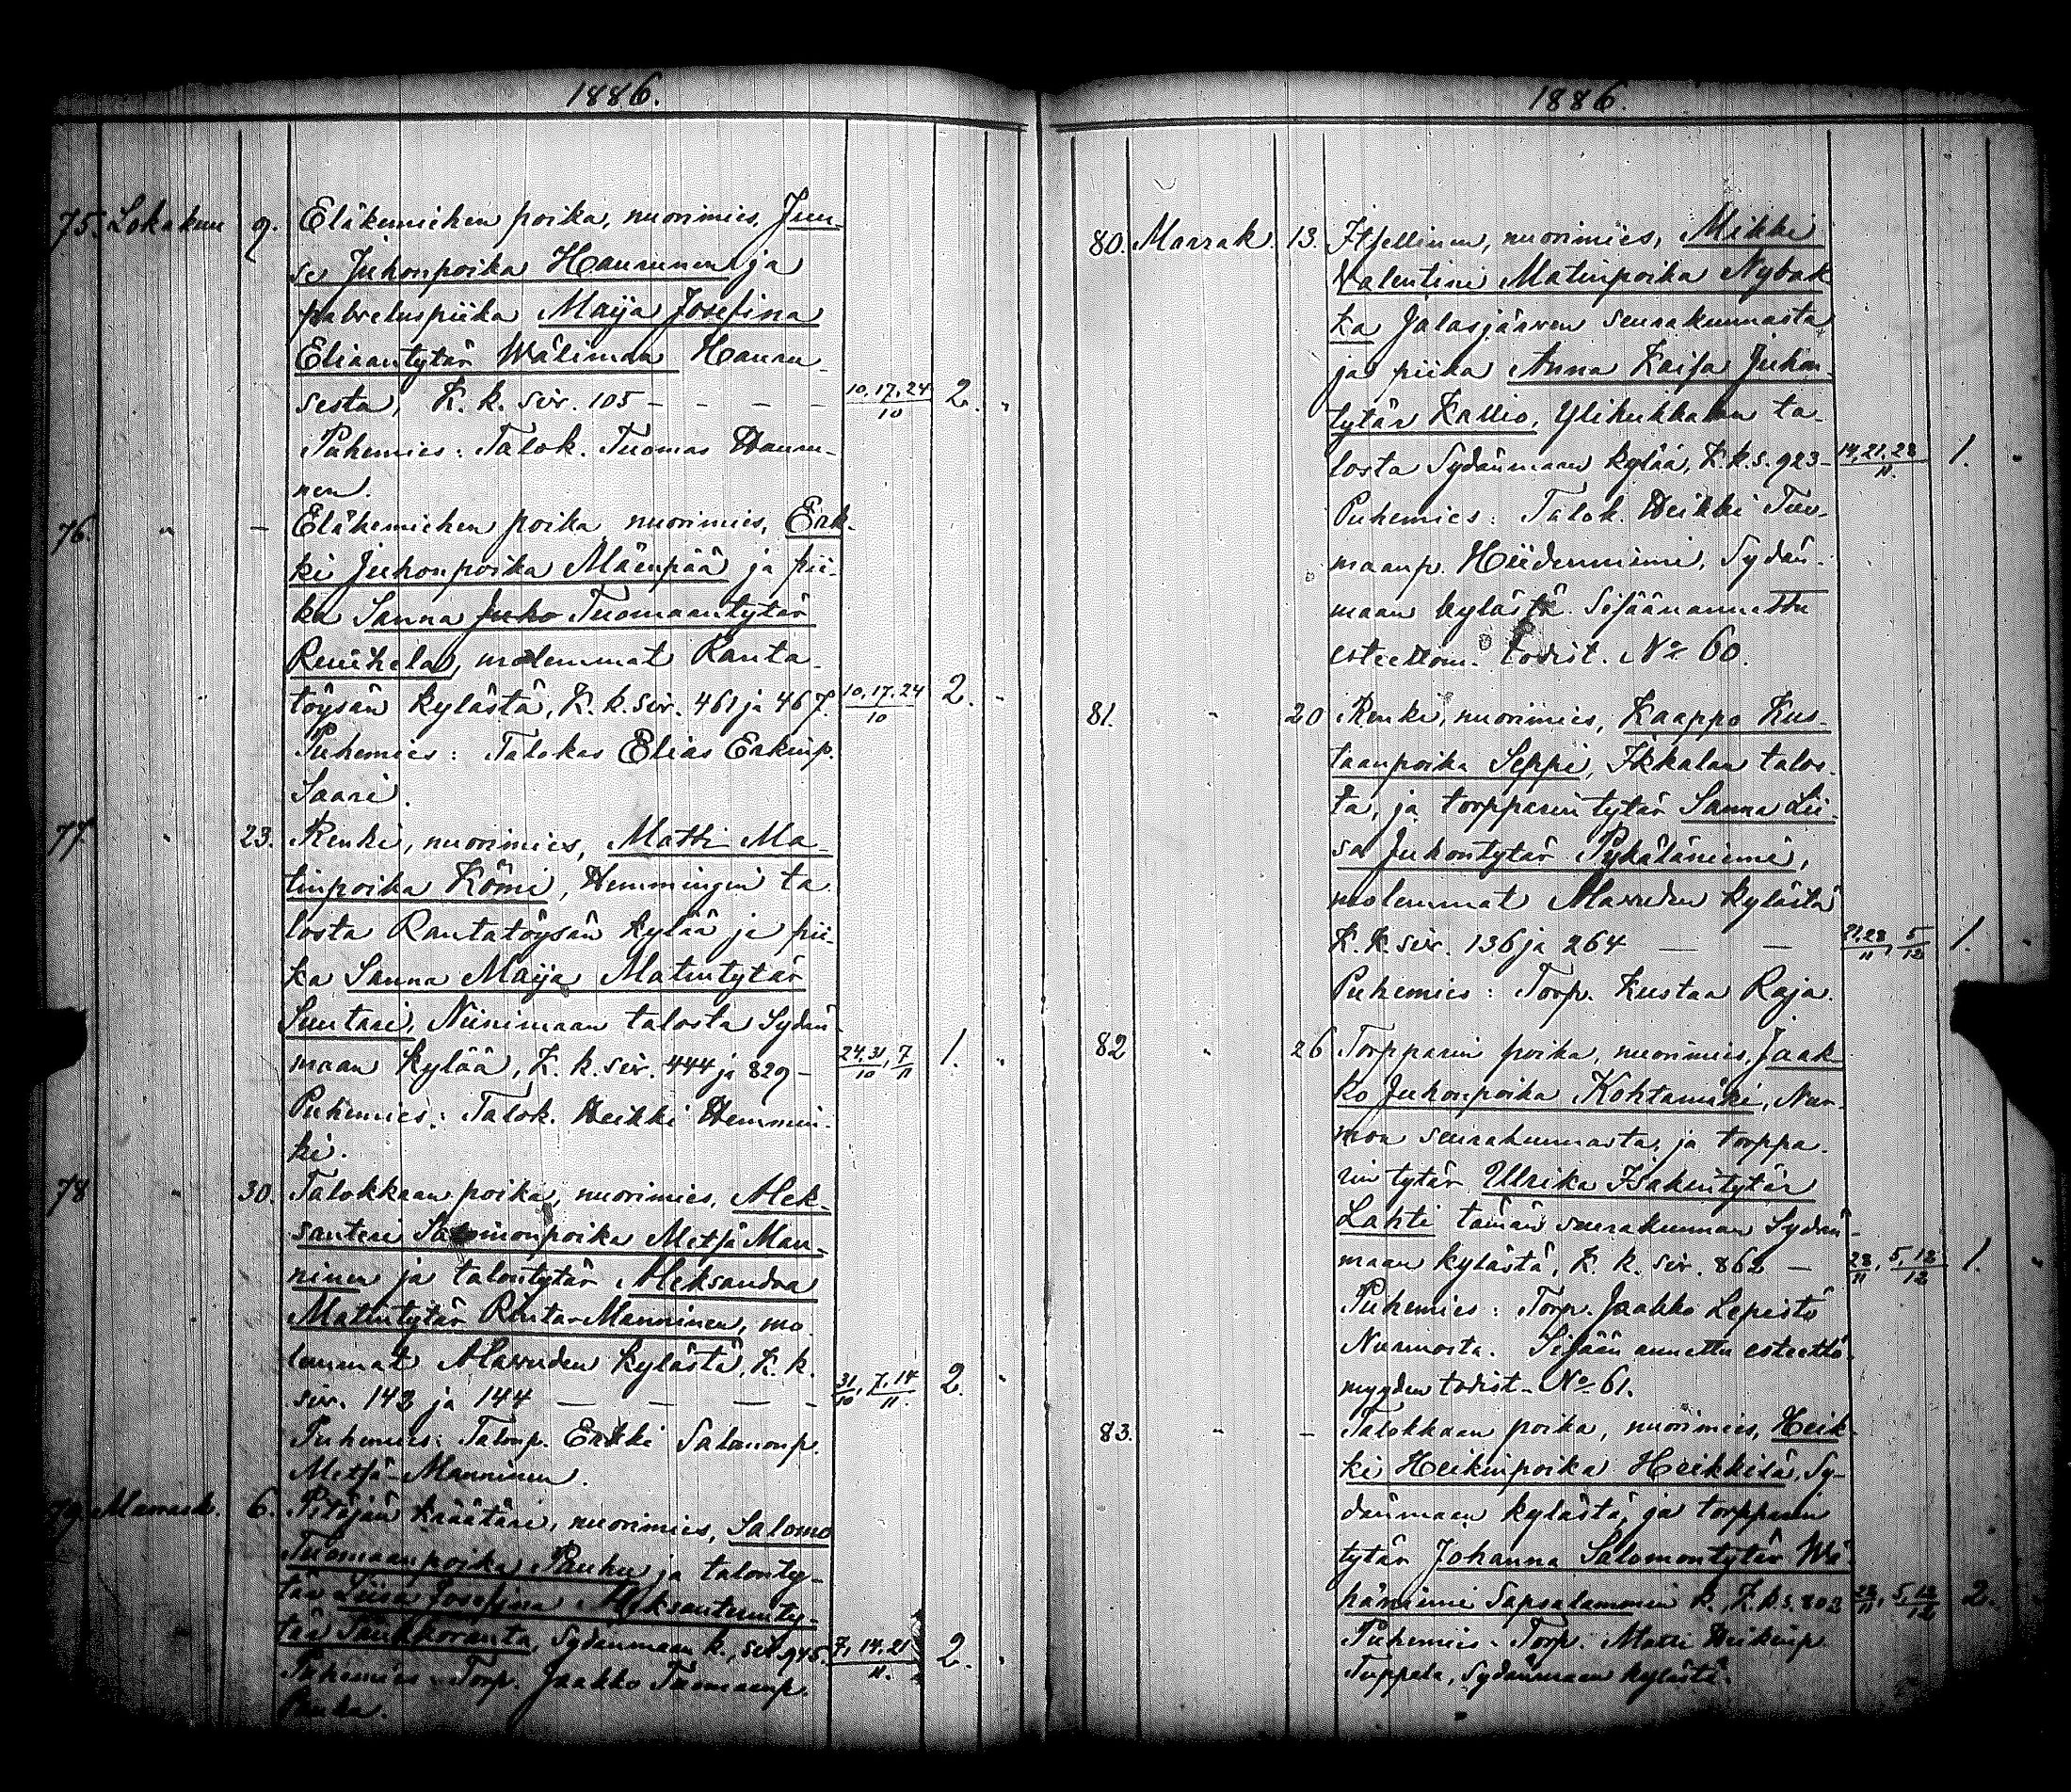 1886.
75. Lokakuu 9. Eläkemiehen poika, nuorimies, Juu-
se Juhonpoika Haununen ja
palveluspiika Maija Josefina
Eliaantytär Wälimaa Haunu-
sesta, K. k. siv. 105 - - - - 10, 17, 24/10 2. "
Puhemies: Talok. Tuomas Haunu-
nen.
76. " - Eläkemiehen poika, nuorimies, Erk-
ki Juhonpoika Mäenpää ja pii-
ka Sanna Juho Tuomaantytär
molemmat Ranta-
töysän kylästä, K. k. siv. 461 ja 467. 10, 17, 24/10 2. "
Puhemies: Talokas Elias Erkinp.
Saari.
77. " 23. Renki, nuorimies, Matti Ma-
tinpoika Kömi, Hemmingin ta-
losta Rantatöysän kylää ja pii-
ka Sanna Maija Matintytär
Suutari, Niinimaan talosta Sydän-
maan kylää, K. k. siv. 444 ja 829 - 24, 31/10, 7/11 1. "
Puhemies: Talok. Heikki Hemmin-
ki.
78 " 30. Talokkaan poika, nuorimies, Alek-
santeri Salomonpoika Metsä Man-
ninen ja talontytär Aleksandra
Matintytär Rinta Manninen, mo-
lemmat Alavuden kylästä, K. k.
siv. 143 ja 144 - - - - 31/10, 7, 14/11. 2. "
Puhemies: Talonp. Erkki Salomonp.
Metsä-Manninen.
79. Marrask. 6. Pitäjän kräätäri, nuorimies, Salomo
Tuomaanpoika Pauhu ja talonty-
tär Liisa Josefina Aleksanterinty-
tär Sydänmaan k., siv. 945. 7, 14, 21/11. 2. "
Puhemies: Torp. Jaakko Tuomaanp.
1886.
80. Marrask. 13. Itsellinen, nuorimies, Mikki
Valentini Matinpoika Nybak-
ka Jalasjärven seurakunnasta,
ja piika Anna Kaisa Juhon-
tytär Kallio, Ylikukkolan ta-
losta Sydänmaan kylää, K. k. s. 923 - 14, 21, 28/11. 1. "
Puhemies: Talok. Heikki Tuo-
maanp. Hiidenniemi, Sydän-
maan kylästä. Sisäänannettu
esteettöm. todist. No 60.
81. " 20 Renki, nuorimies, Kaappo Kus-
taanpoika Seppi, Ikkalan talos-
ta, ja torpparin tytär Sanna Lii-
sa Juhontytär Pykäläniemi,
molemmat Alavuden kylästä
K. k. siv. 136 ja 264 - - 21, 28/11, 5/12 1. "
Puhemies: Torp. Kustaa Raja.
82 " 26 Torpparin poika, nuorimies, Jaak-
ko Juhonpoika Kohtamäki, Nur-
mon seurakunnasta, ja torppa-
rin tytär Ulrika Isakintytär
Lahti tämän seurakunnan Sydän-
maan kylästä, K. k. siv. 862 - 28/11, 5, 12/12 1. "
Puhemies: Torp. Jaakko Lepistö
Nurmosta. Sisään annettu esteettö-
myyden todist. No 61.
83. " - Talokkaan poika, nuorimies, Heik-
ki Heikinpoika Heikkilä, Sy-
dänmaan kylästä, ja torpparin
tytär Johanna Salomontytär Wä-
häniemi Sapsalammin k., K. k. s. 803 28/11, 5, 12/12 2. "
Puhemies: Torp. Matti Heikinp.
Tuppala, Sydänmaan kylästä.